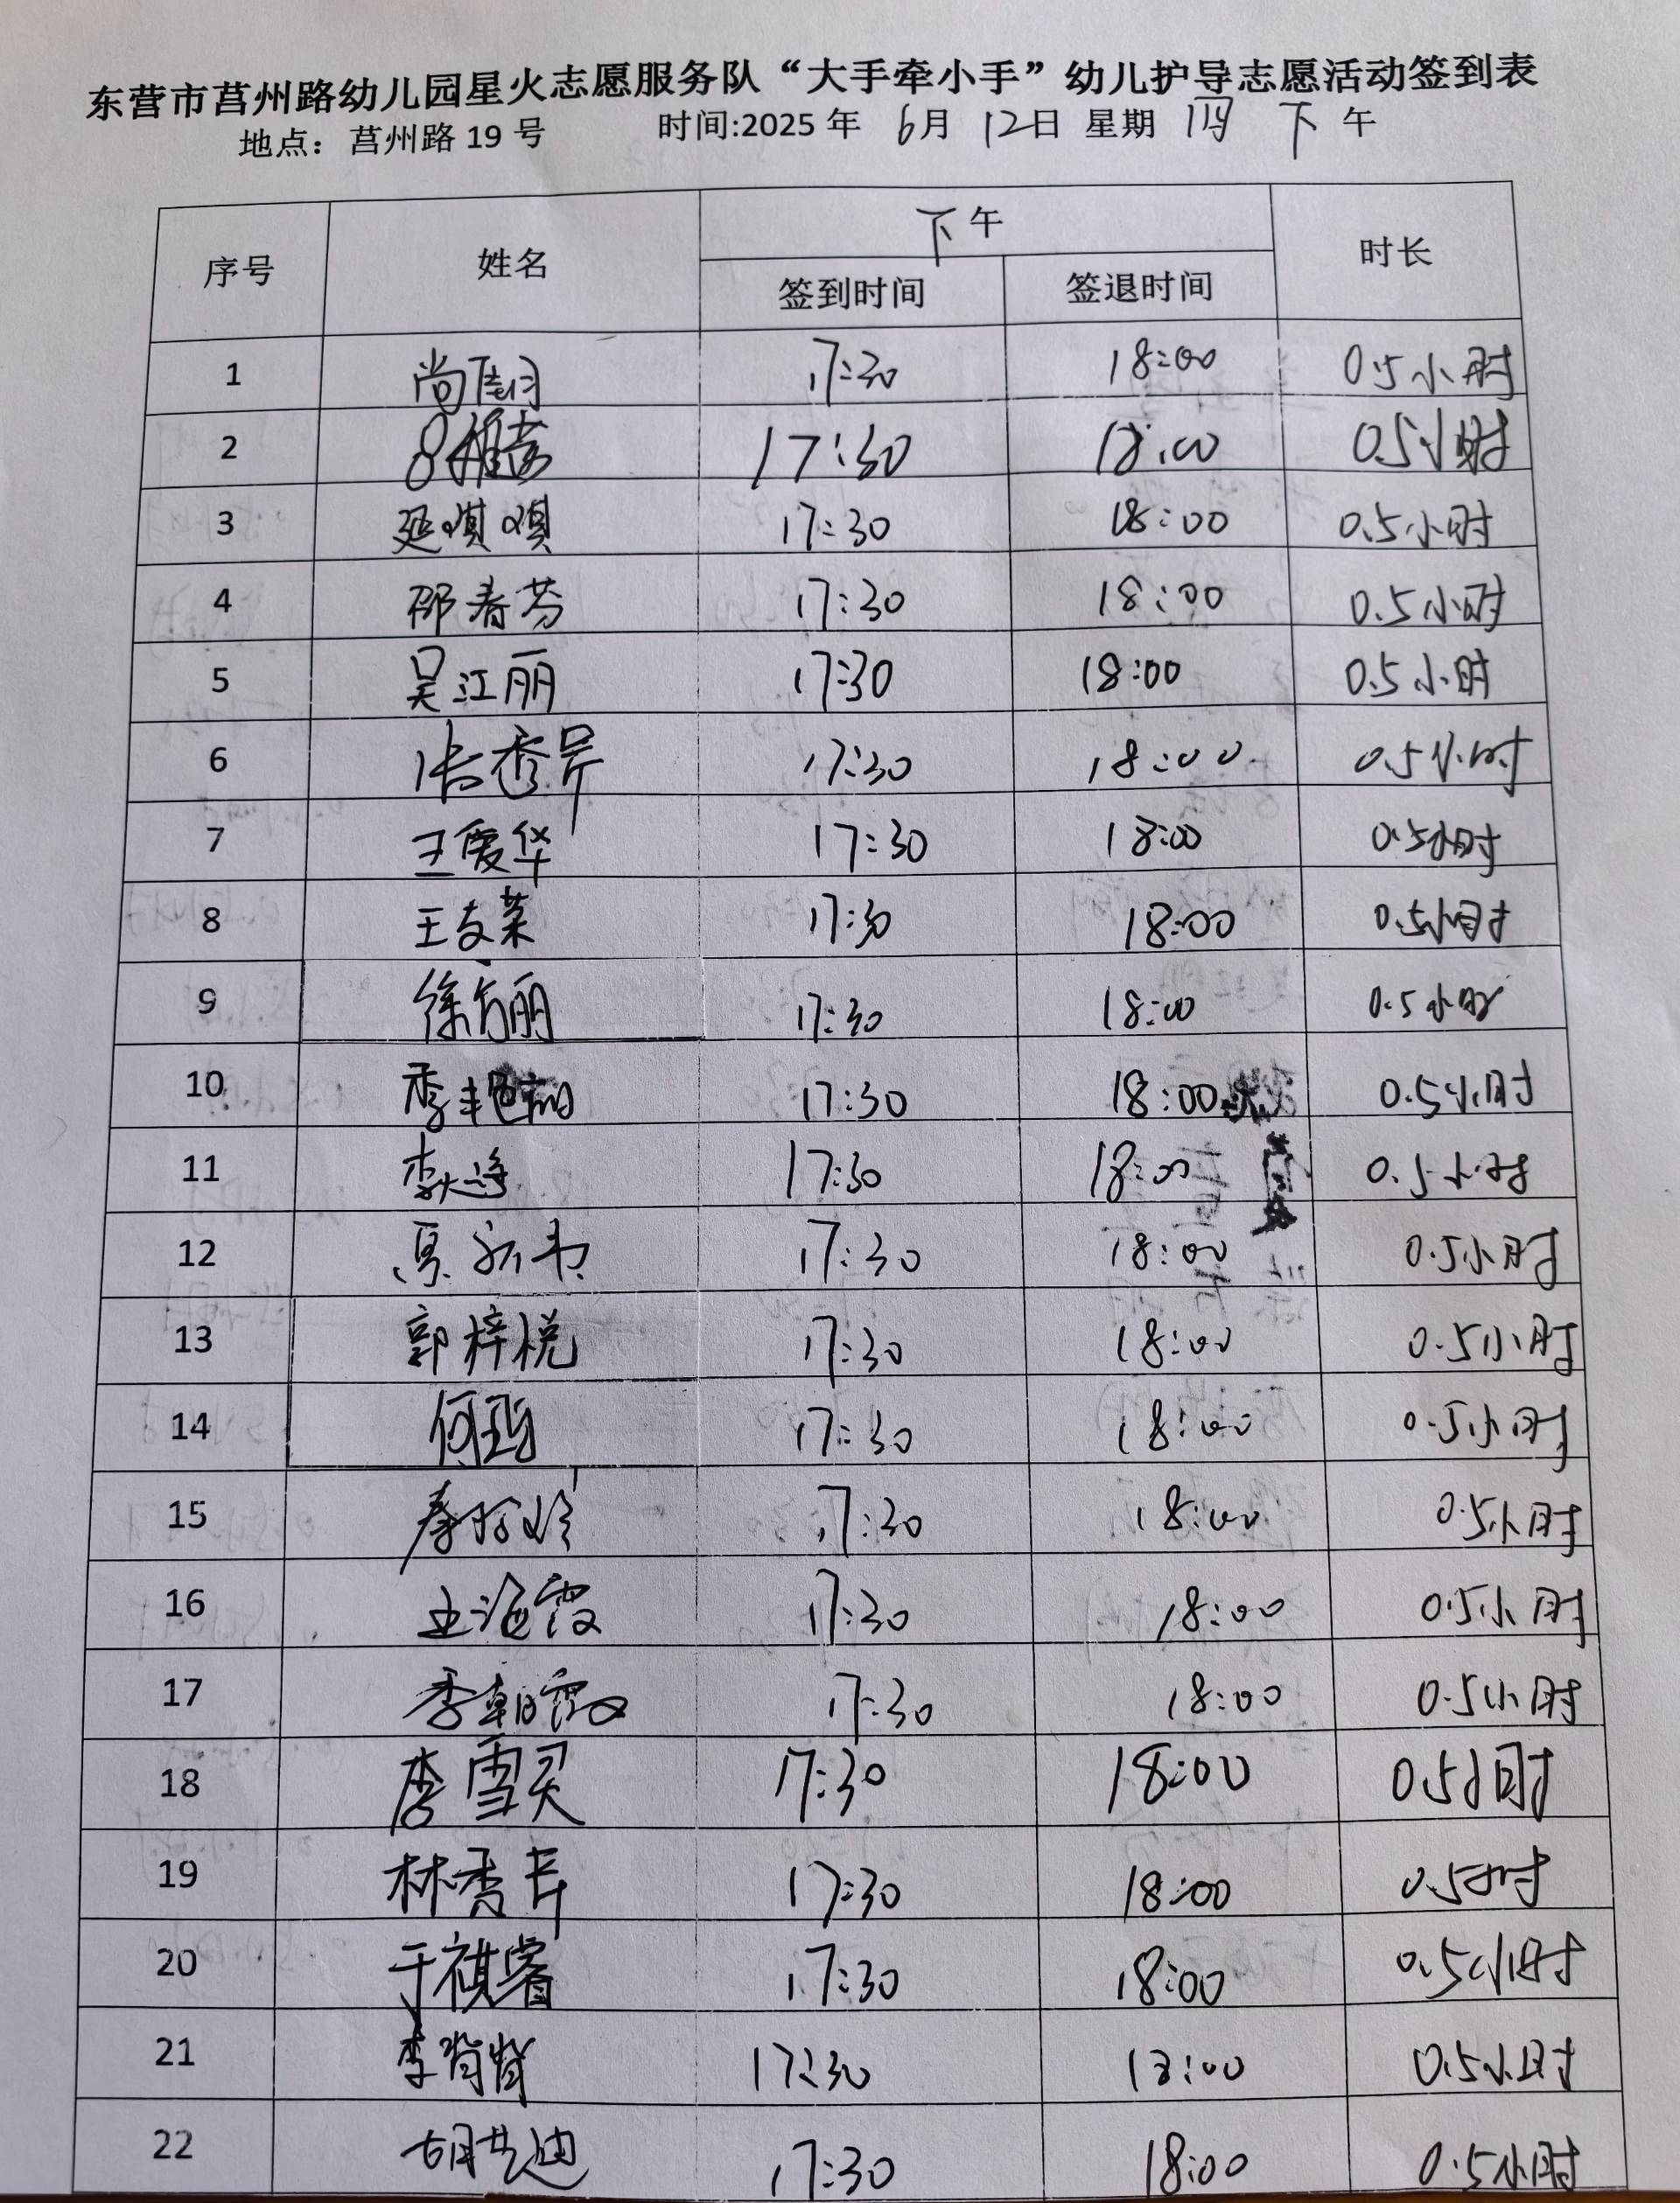 东营市莒州路幼儿园星火志愿服务队“大手牵小手”幼儿护导志愿活动签到表
地点：莒州路 19 号 时间:2025 年 6月 12日 星期 四 下 午
序号 姓名 下午 时长
签到时间 签退时间
1 尚 17:30 18:00 0.5小时
2 17:30 18:00 0.5小时
3 延唭唭 17:30 18:00 0.5小时
4 邵春芬 17:30 18:00 0.5小时
5 吴江丽 17:30 18:00 0.5小时
6 张秀芹 17:30 18:00 0.5小时
7 王爱华 17:30 18:00 0.5小时
8 王友荣 17:30 18:00 0.5小时
9 徐方丽 17:30 18:00 0.5小时
10 季艳丽 17:30 18:00 0.5小时
11 17:30 18:00 0.5小时
12 17:30 18:00 0.5小时
13 郭梓悦 17:30 18:00 0.5小时
14 何 17:30 18:00 0.5小时
15 秦玲玲 17:30 18:00 0.5小时
16 王海霞 17:30 18:00 0.5小时
17 李朝霞 17:30 18:00 0.5小时
18 李雪 17:30 18:00 0.5小时
19 林秀芹 17:30 18:00 0.5小时
20 于祺睿 17:30 18:00 0.5小时
21 李肖肖 17:30 18:00 0.5小时
22 胡艺迪 17:30 18:00 0.5小时